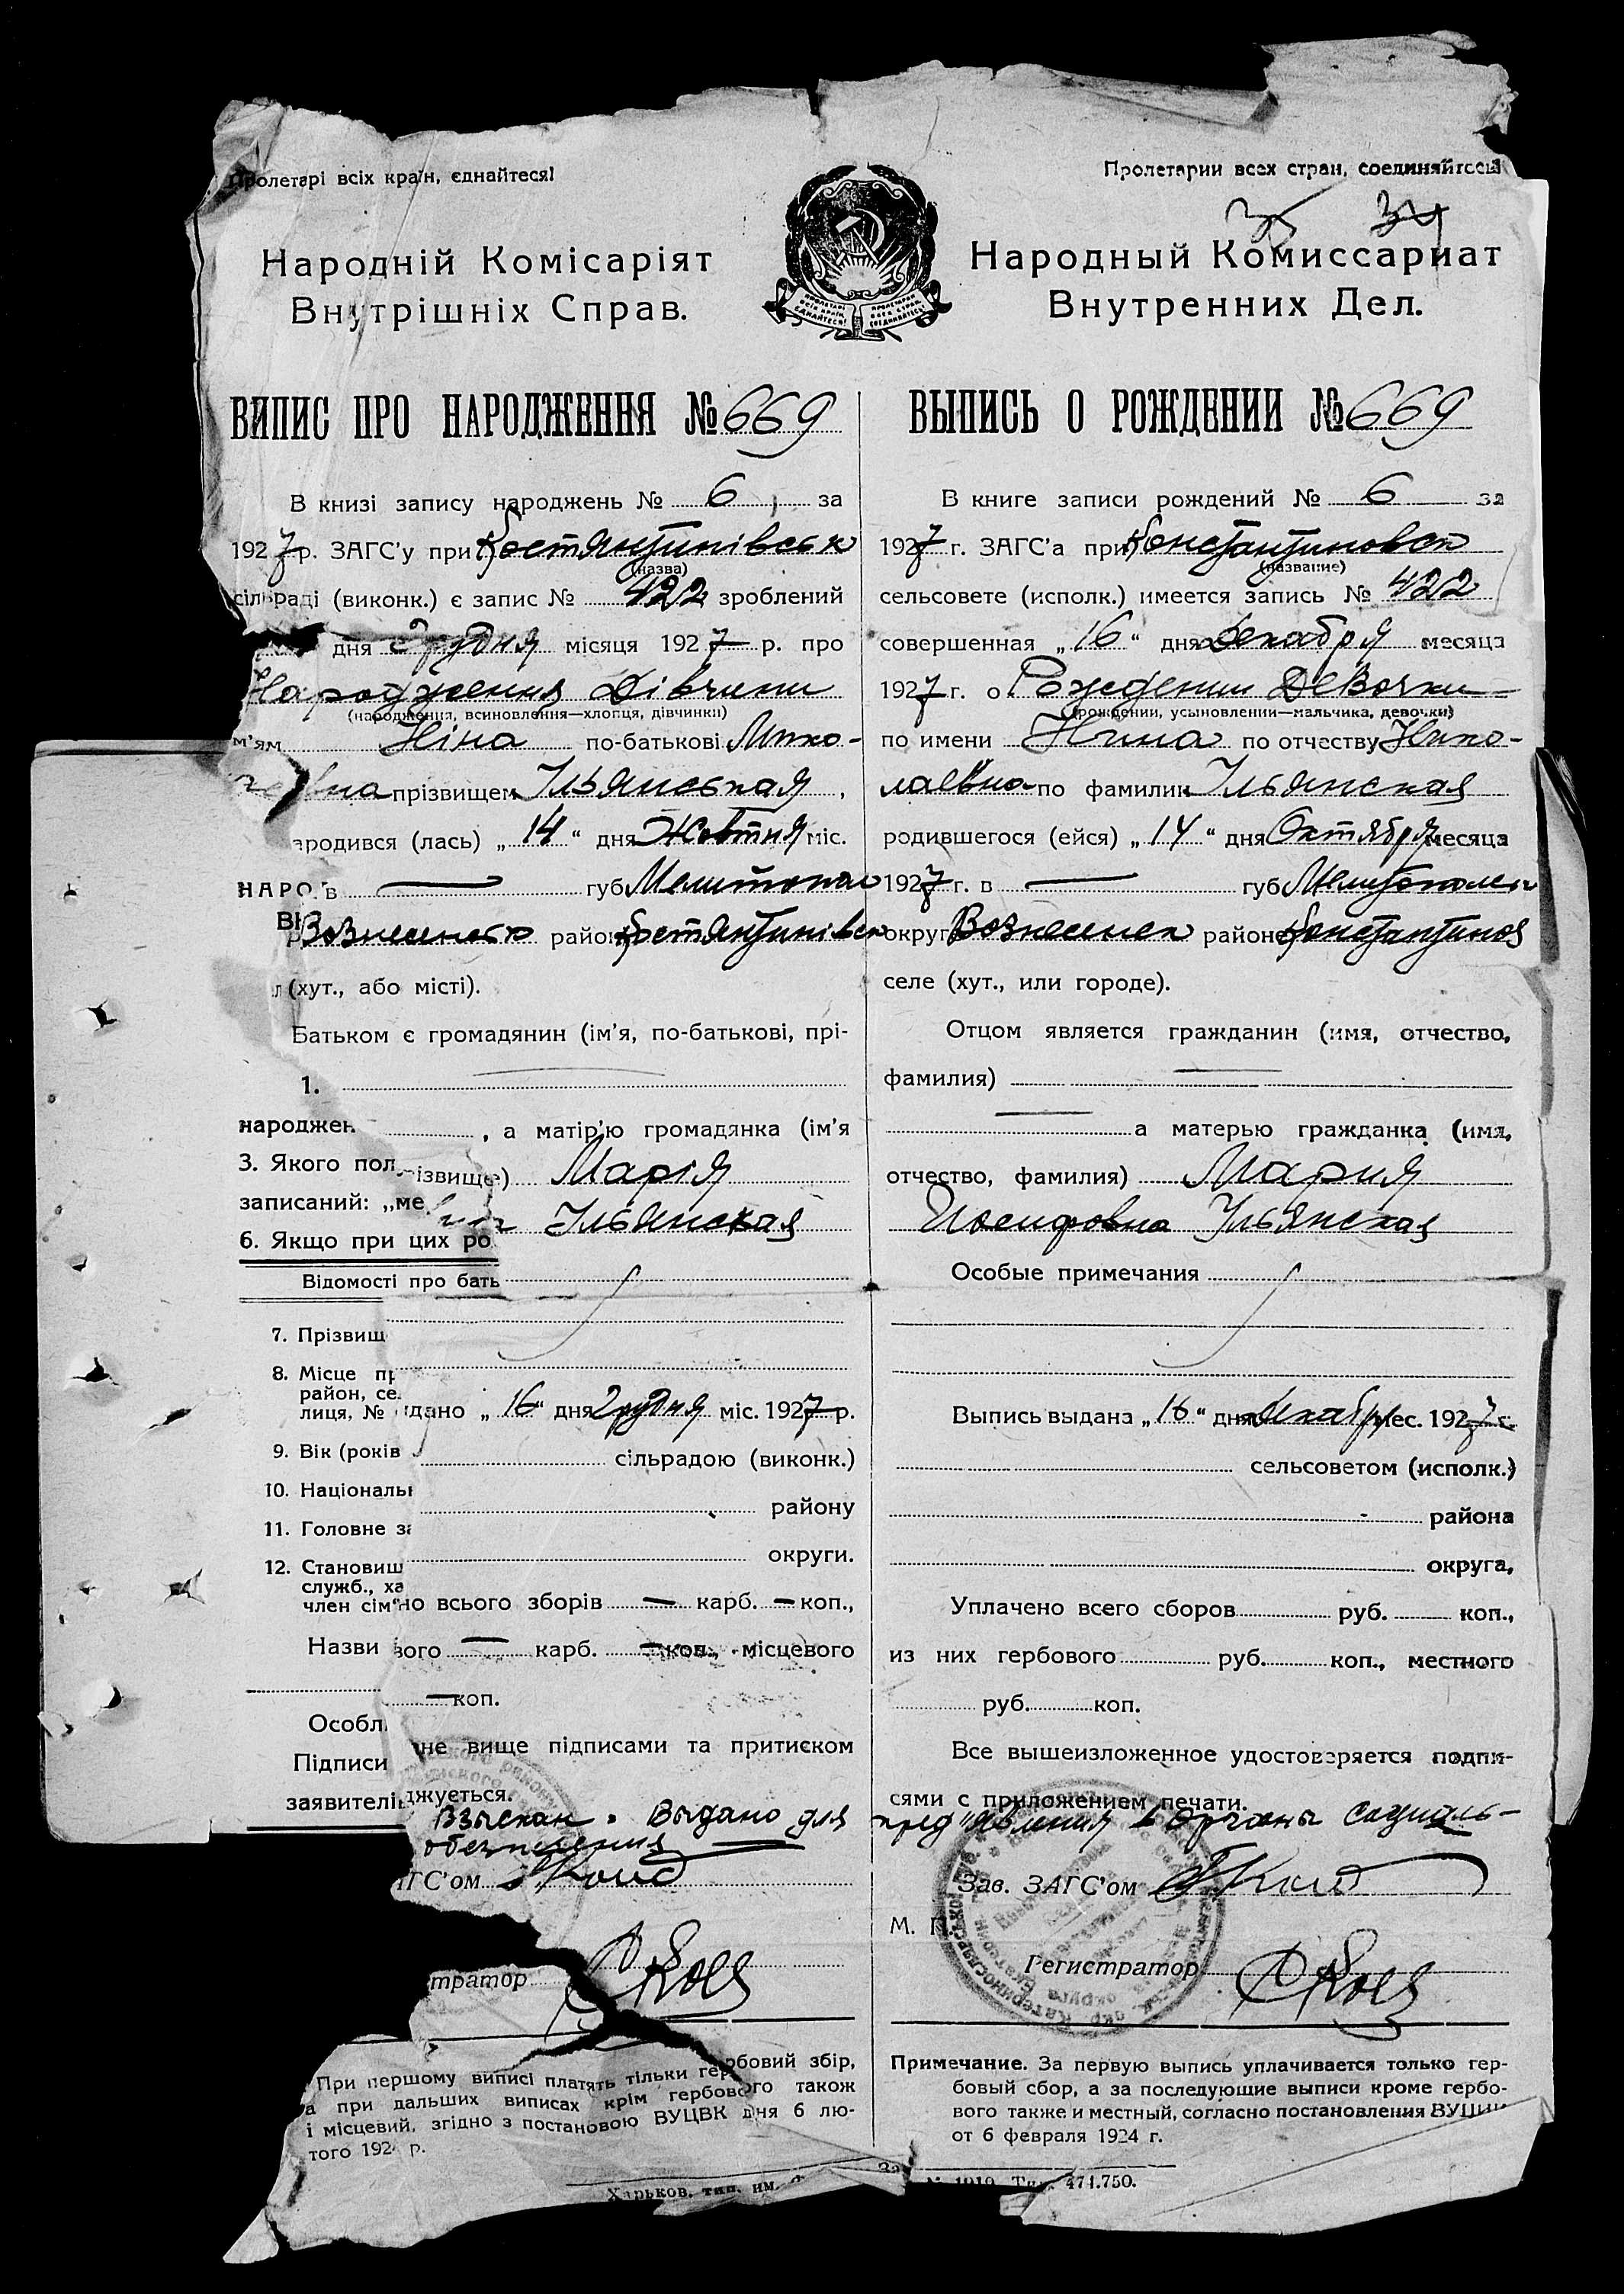 Пролетарі всіх країн, єднайтеся!
Народній Комісаріят
Внутрішніх Справ.
ВИПИС ПРО НАРОДЖЕННЯ № 669
В книзі запису народжень № 6 за
1927 р. ЗАГС'у при Костянтинівськ
(назва)
сільраді (виконк.) є запис № 422 зроблений
дня Грудня місяця 1927 р. про
Народження Дівчини
(народження, всиновлення—хлопця, дівчинки)
м'ям Ніна по-батькові Мико-
вна прізвищем Ільянськая,
ародився (лась) „14“ дня Жовтня міс.
НАРО в — губ. Мелитопол
Вознесенсько район Костянтинівск
(хут., або місті).
Батьком є громадянин (ім'я, по-батькові, прі-
1.
народжен , а матір'ю громадянка (ім'я
3. Якого пол різвище) Марія
записаний: „ме Ільянская
6. Якщо при цих ро
Відомості про бать
7. Прізвищ
8. Місце пр
район, се
лиця, № идано „16“ дня Грудня міс. 1927 р.
9. Вік (років сільрадою (виконк.)
10. Національн району
11. Головне за округи.
12. Становищ
служб., ха
член сім' но всього зборів — карб. — коп.,
Назви вого — карб. — коп., місцевого
— коп.
Особл
Підписи не вище підписами та притиском
заявителів джується.
Пролетарии всех стран, соединяйтесь!
35 34
Народный Комиссариат
Внутренних Дел.
ВЫПИСЬ О РОЖДЕНИИ № 669
В книге записи рождений № 6 за
1927 г. ЗАГС'а при Константиновск
(название)
сельсовете (исполк.) имеется запись № 422
совершенная „16“ дня Декабря месяца
1927 г. о Рождении Девочки
(рождении, усыновлении—мальчика, девочки)
по имени Нина по отчеству Нико-
лаевна по фамилии Ильянская
родившегося (ейся) „14“ дня Октября месяца
1927 г. в — губ. Мелитополь
округ Вознесенск районе Константинов
селе (хут., или городе).
Отцом является гражданин (имя, отчество,
фамилия) —
— а матерью гражданка (имя,
отчество, фамилия) Мария
Иосифовна Ильянская
Особые примечания
Выпись выдана „16“ дня Декабр мес. 1927 г.
сельсоветом (исполк.)
района
округа,
Уплачено всего сборов руб. коп.,
из них гербового руб. коп., местного
руб. коп.
Все вышеизложенное удостоверяется подпи-
сями с приложением печати.
Взыскан. Выдано для пред'явления в органы социаль-
обезпечения
ГС'ом
Зав. ЗАГС'ом
М. П.
тратор
Регистратор
При першому виписі платять тільки гербовий збір,
а при дальших виписах крім гербового також
і місцевий, згідно з постановою ВУЦВК дня 6 лю-
того 192 р.
Примечание. За первую выпись уплачивается только гер-
бовый сбор, а за последующие выписи кроме гербо-
вого также и местный, согласно постановления ВУЦИК
от 6 февраля 1924 г.
Харьков, тип. им. № 1919. 471.750.